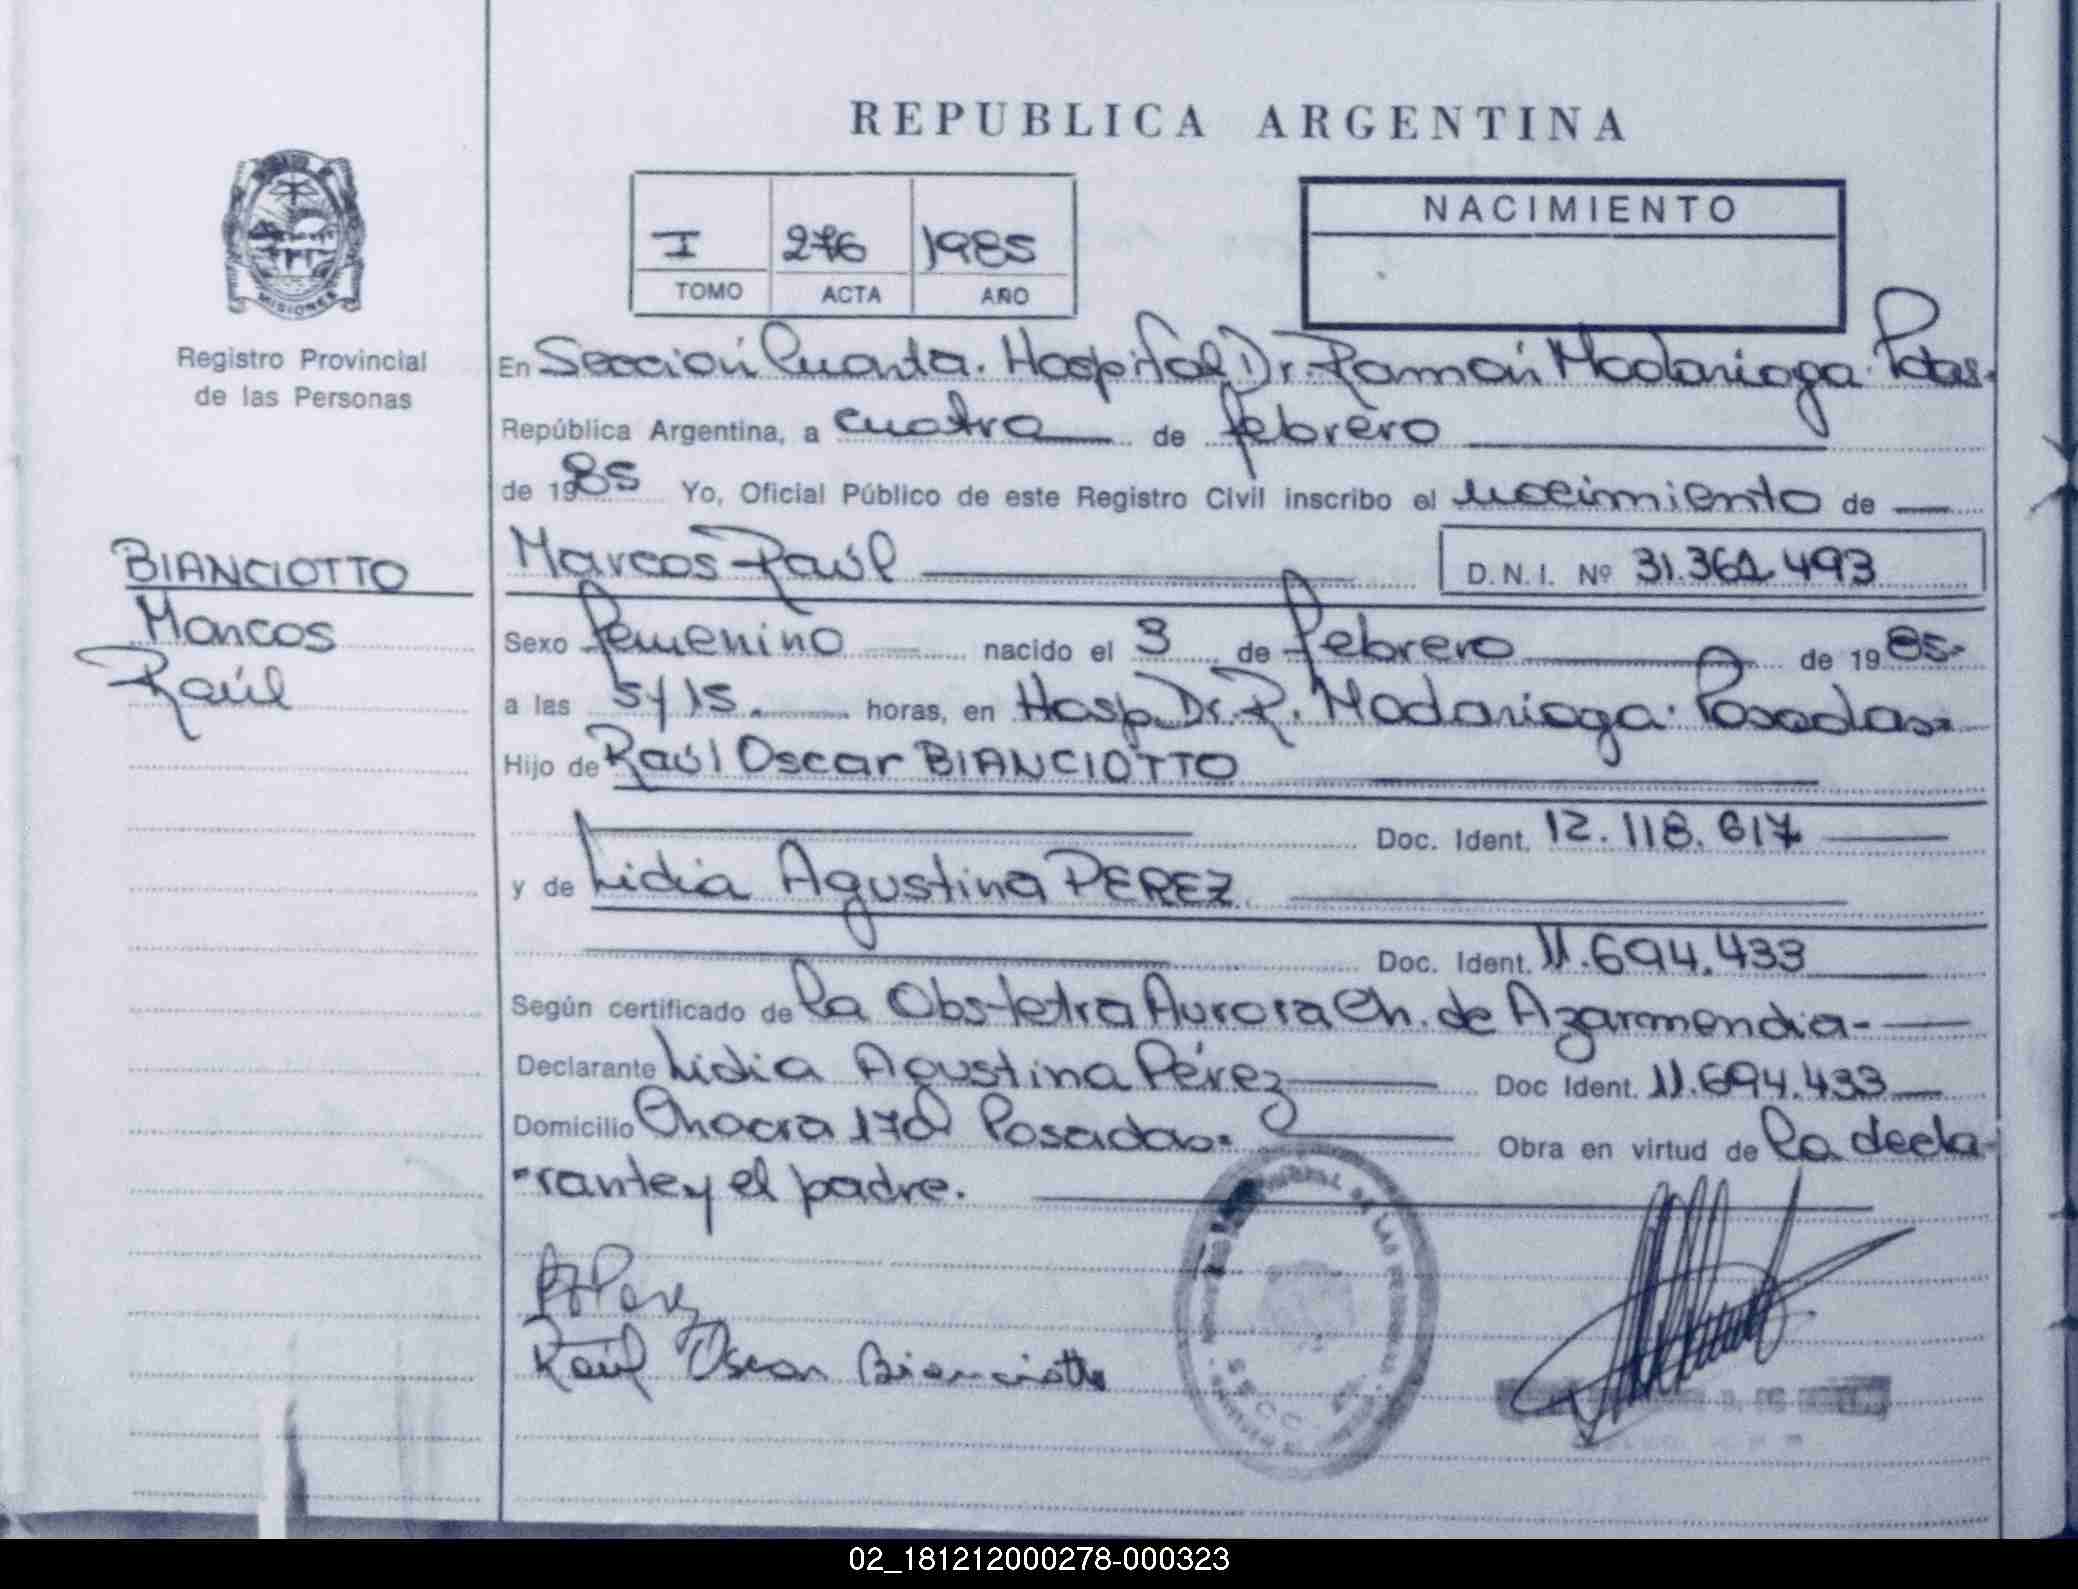 REPUBLICA ARGENTINA
I 276 1985
TOMO ACTA AÑO
NACIMIENTO
MISIONES
Registro Provincial
de las Personas
BIANCIOTTO
Marcos
Raúl
En Sección Cuarta. Hospital Dr. Ramón Madariaga. Pdas.
República Argentina, a cuatro de febrero
de 1985 Yo, Oficial Público de este Registro Civil inscribo el nacimiento de
Marcos Raúl D.N.I. Nº 31.361.493
Sexo femenino nacido el 3 de febrero de 1985.
a las 5y15. horas, en Hosp. Dr. R. Madariaga. Posadas.
Hijo de Raúl Oscar BIANCIOTTO
Doc. Ident. 12.118.617
y de Lidia Agustina PEREZ
Doc. Ident. 11.694.433
Según certificado de la Obstetra Aurora Ch. de Azarmendia-
Declarante Lidia Agustina Pérez Doc Ident. 11.694.433
Domicilio Chacra 170 Posadas. Obra en virtud de la decla-
-rante y el padre.
Perez
Raúl Oscar Bianciotto
02_181212000278-000323